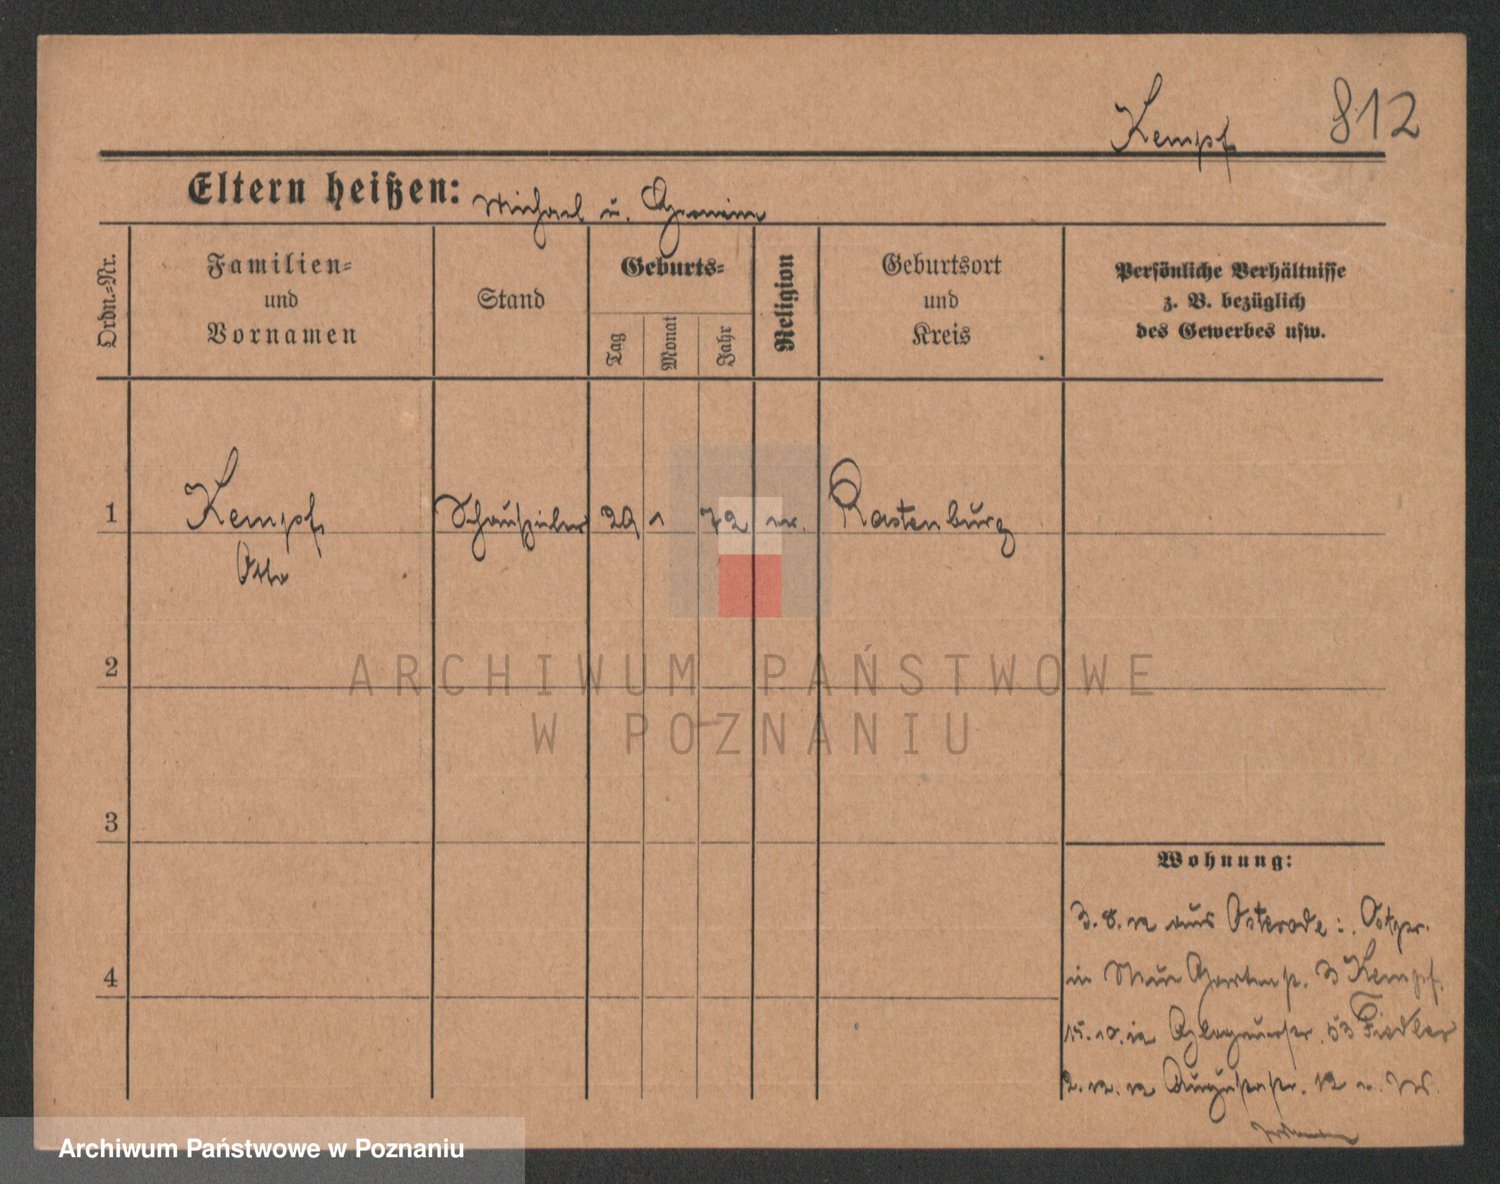 Kempf 812
Eltern heißen: Michael u.
Ordn.-Nr.
Familien-
und
Vornamen
Stand
Geburts-
Tag
Monat
Jahr
Religion
Geburtsort
und
Kreis
Persönliche Verhältnisse
z. B. bezüglich
des Gewerbes usw.
1 Kempf, Schauspieler 29 1 72 ev. Rastenburg
Otto
2
3
4
Wohnung:
3. 8. 12 aus Osterode i. Ostpr.
in Neue Gartenstr. 3 Kempf.
15. 10. in Glogauerstr. 53 Fiedler
2. 12. 12 Augustastr. 12
ARCHIWUM PAŃSTWOWE
W POZNANIU
Archiwum Państwowe w Poznaniu